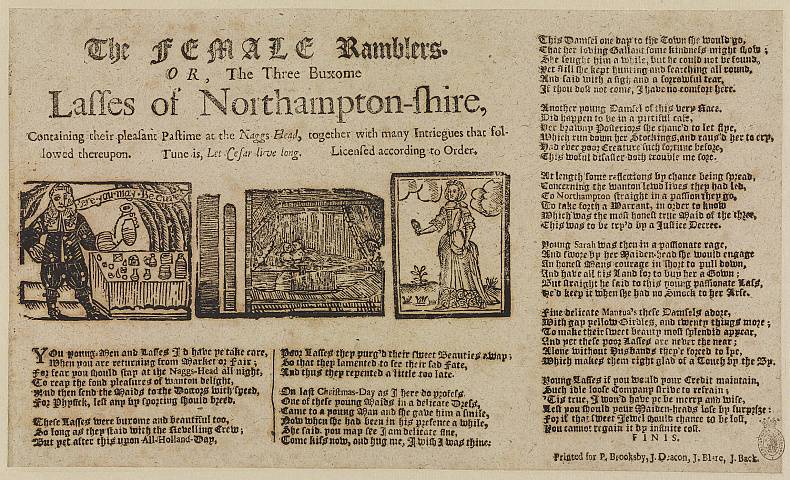 The FEMALE Ramblers.
OR, The Three Buxome
Lasses of Northampton-shire,
Containing their pleasant Pastime at the Naggs-Head, together with many Intriegues that fol-
lowed thereupon. Tune is, Let Cesar live long. Licensed according to Order.
Here you may be
YOu young-Men and Lasses I'd have ye take care,
When you are returning from Market or Fair;
For fear you should stay at the Naggs-Head all night,
To reap the fond pleasures of wanton delight,
And then send the Maids to the Doctors with speed,
For Physick, lest any by sporting should breed.
These Lasses were buxome and beautiful too,
So long as they staid with the Revelling Crew;
But yet after this upon All-Holland-Day,
Poor Lasses they purg'd their sweet Beauties away;
So that they lamented to see their sad Fate,
And thus they repented a little too late.
On last Christmas-Day as I here do profess,
One of these young Maids in a delicate Dress,
Came to a young Man and she gave him a smile,
Now when she had been in his presence a while,
She said, you may see I am delicate fine,
Come kiss now, and hug me, I wish I was thine.
This Damsel one day to the Town she would go,
That her loving Gallant some kindness might show;
She sought him a while, but he could not be found,
Yet still she kept hunting and searching all round,
And said with a sigh and a sorrowful tear,
If thou dost not come, I have no comfort here.
Another young Damsel of this very Race,
Did happen to be in a pitiful case,
Her brawny Posteriors she chanc'd to let flye,
Which run down her Stockings, and caus'd her to cry,
Had ever poor Creature such fortune before,
This woful disaster doth trouble me sore.
At length some reflections by chance being spread,
Concerning the wanton lewd lives they had led,
To Northampton straight in a passion they go,
To take forth a Warrant, in order to know
Which was the most honest true Maid of the three,
This was to be try'd by a Justice Decree.
Young Sarah was then in a passionate rage,
And swore by her Maiden-head she would engage
An honest Mans courage in short to pull down,
And have all his Land for to buy her a Gown;
But straight he said to this young passionate Lass,
He'd keep it when she had no Smock to her Arse.
Fine delicate Mantua's these Damsels adore,
With gay yellow Girdles, and twenty things more;
To make their sweet beauty most splendid appear,
And yet these poor Lasses are never the near;
Alone without Husbands they're forced to lye,
Which makes them right glad of a Touch by the By.
Young Lasses if you would your Credit maintain,
Such idle loose Company strive to refrain;
'Tis true, I wou'd have ye be merry and wise,
Lest you should your Maiden-heads lose by surprise:
For if that sweet Jewel should chance to be lost,
You cannot regain it by infinite cost.
FINIS.
Printed for P. Brooksby, J. Deacon, J. Blare, J. Back.